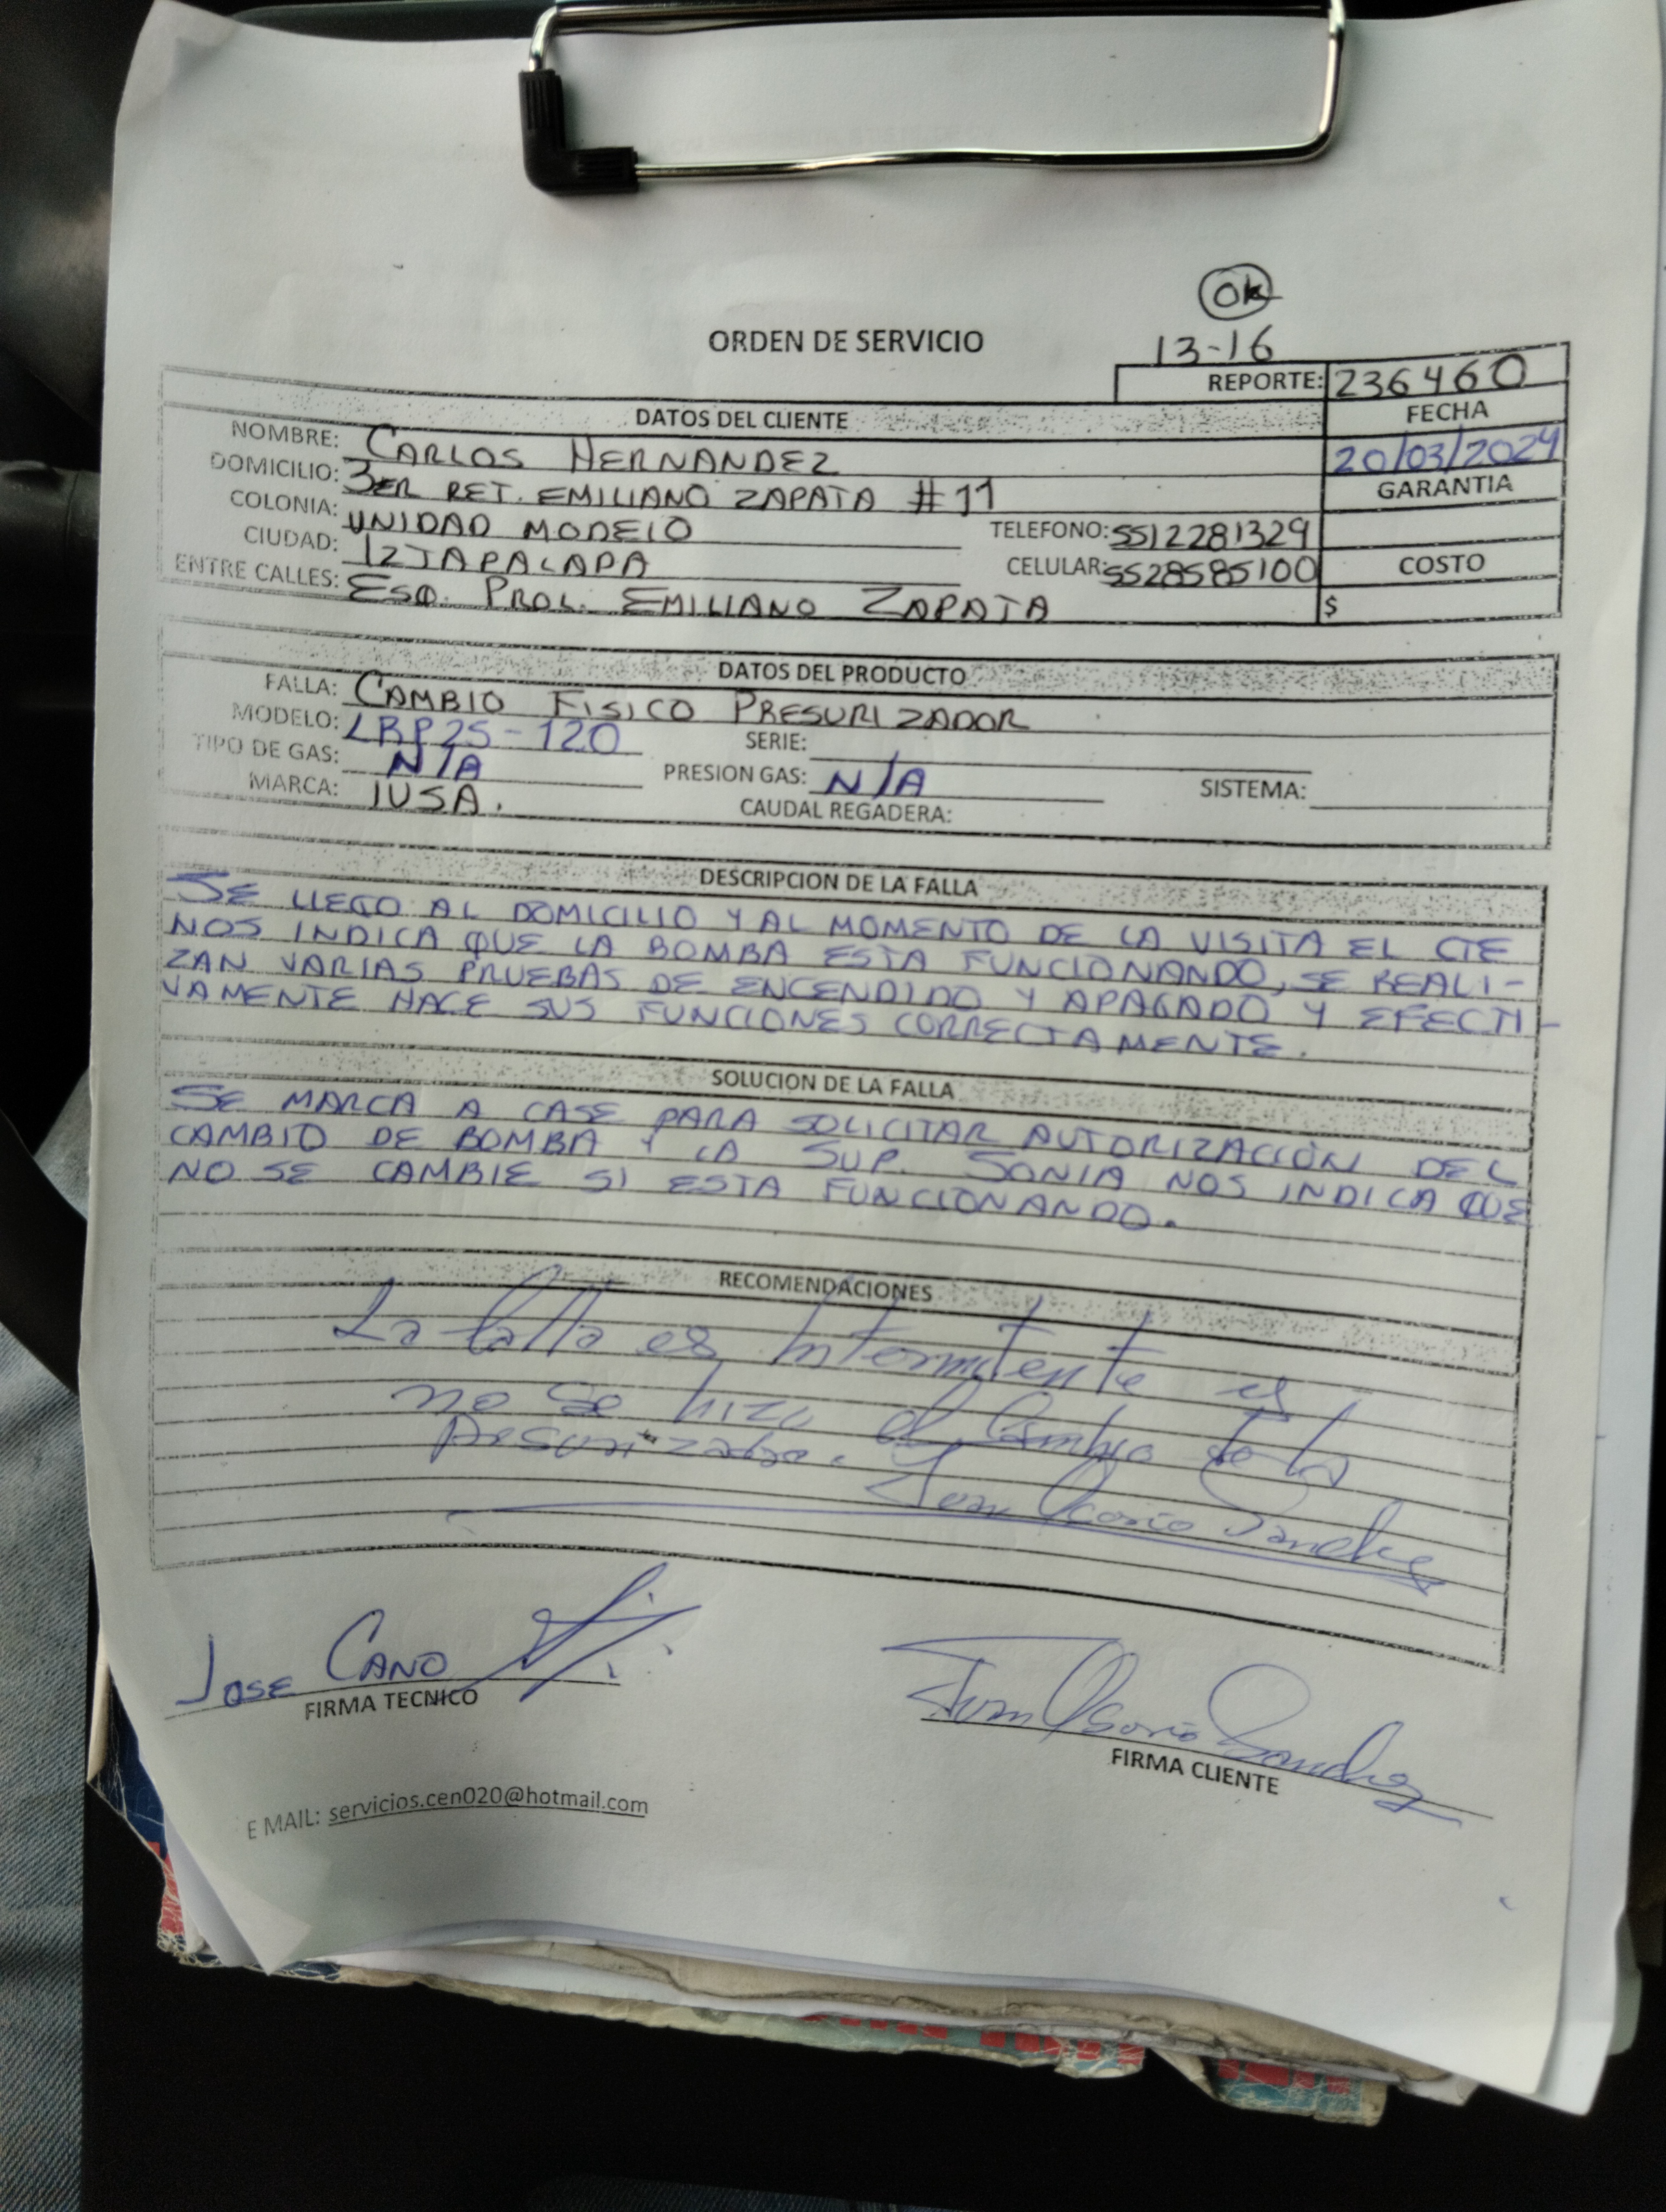 OK
13-16
ORDEN DE SERVICIO
REPORTE: 236460
DATOS DEL CLIENTE
FECHA
NOMBRE: CARLOS HERNANDEZ
20/03/2024
DOMICILIO: 3ER RET. EMILIANO ZAPATA #11
GARANTIA
COLONIA: UNIDAD MODELO
TELEFONO: 5512281329
CIUDAD: IZTAPALAPA
CELULAR: 5528585100
COSTO
ENTRE CALLES: ESQ. PROL. EMILIANO ZAPATA
$
DATOS DEL PRODUCTO
FALLA: CAMBIO FISICO PRESURIZADOR
MODELO: LBP25-120 SERIE:
TIPO DE GAS: N/A PRESION GAS: N/A SISTEMA:
MARCA: IUSA. CAUDAL REGADERA:
DESCRIPCION DE LA FALLA
SE LLEGO AL DOMICILIO Y AL MOMENTO DE LA VISITA EL CTE
NOS INDICA QUE LA BOMBA ESTA FUNCIONANDO, SE REALI-
ZAN VARIAS PRUEBAS DE ENCENDIDO Y APAGADO Y EFECTI-
VAMENTE HACE SUS FUNCIONES CORRECTAMENTE.
SOLUCION DE LA FALLA
SE MARCA A CASE PARA SOLICITAR AUTORIZACIÓN DEL
CAMBIO DE BOMBA Y LA SUP. SONIA NOS INDICA QUE
NO SE CAMBIE SI ESTA FUNCIONANDO.
RECOMENDACIONES
La falla es Intermitente
no se hizo el Cambio de la
presurizadora.
Osorio Sanchez
JOSE CANO
FIRMA TECNICO
Osorio Sanchez
FIRMA CLIENTE
E MAIL: servicios.cen020@hotmail.com